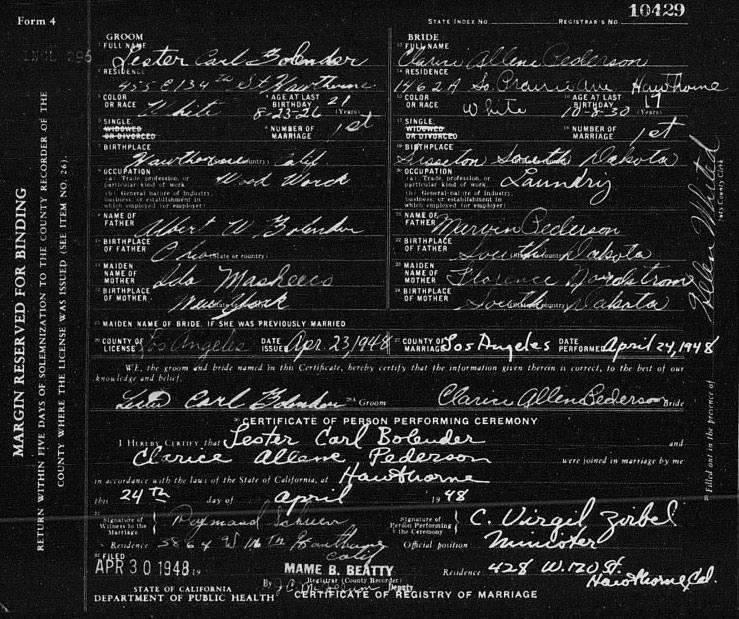 10429
Form 4
STATE INDEX No.
REGISTRAR'S No.
GROOM
FULL NAME
Lester Carl Bolender
RESIDENCE
455 E 134th St Hawthorne
COLOR OR RACE
White
AGE AT LAST BIRTHDAY 21 (Years)
8-23-26
SINGLE, WIDOWED OR DIVORCED
NUMBER OF MARRIAGE
1st
BIRTHPLACE
Hawthorne Calif
OCCUPATION
(a) Trade, profession, or particular kind of work
Wood Work
(b) General nature of industry, business, or establishment in which employed (or employer)
NAME OF FATHER
Albert W. Bolender
BIRTHPLACE OF FATHER
Ohio (State or country)
MAIDEN NAME OF MOTHER
Ida
BIRTHPLACE OF MOTHER
New York
BRIDE
FULL NAME
Clarice Allene Pederson
RESIDENCE
1462A So. Prairie Ave Hawthorne
COLOR OR RACE
White
AGE AT LAST BIRTHDAY 17 (Years)
10-8-30
SINGLE, WIDOWED OR DIVORCED
NUMBER OF MARRIAGE
1st
BIRTHPLACE
Sisseton South Dakota
OCCUPATION
(a) Trade, profession, or particular kind of work
Laundry
(b) General nature of industry, business, or establishment in which employed (or employer)
NAME OF FATHER
Mervin Pederson
BIRTHPLACE OF FATHER
South Dakota
MAIDEN NAME OF MOTHER
Florence Nordstrom
BIRTHPLACE OF MOTHER
South Dakota
MAIDEN NAME OF BRIDE, IF SHE WAS PREVIOUSLY MARRIED
COUNTY OF LICENSE Los Angeles DATE ISSUED Apr. 23, 1948
COUNTY OF MARRIAGE Los Angeles DATE PERFORMED April 24, 1948
WE, the groom and bride named in this Certificate, hereby certify that the information given therein is correct, to the best of our
knowledge and belief.
Carl Bolender Groom Clarice Allene Pederson Bride
CERTIFICATE OF PERSON PERFORMING CEREMONY
I HEREBY CERTIFY that Lester Carl Bolender and
Clarice Allene Pederson were joined in marriage by me
in accordance with the laws of the State of California, at Hawthorne
this 24th day of april 1948
Signature of Witness to the Marriage
Raymond
Residence
Signature of Person Performing the Ceremony
C. Virgil Zirbel
Official position Minister
FILED
APR 30 1948 19
MAME B. BEATTY
Registrar (County Recorder)
By Deputy
Residence 428 W. 120 St.
Hawthorne, Cal.
STATE OF CALIFORNIA
DEPARTMENT OF PUBLIC HEALTH
CERTIFICATE OF REGISTRY OF MARRIAGE
MARGIN RESERVED FOR BINDING
RETURN WITHIN FIVE DAYS OF SOLEMNIZATION TO THE COUNTY RECORDER OF THE
COUNTY WHERE THE LICENSE WAS ISSUED (SEE ITEM NO. 26).
Filled out in the presence of
Helen Whited
County Clerk